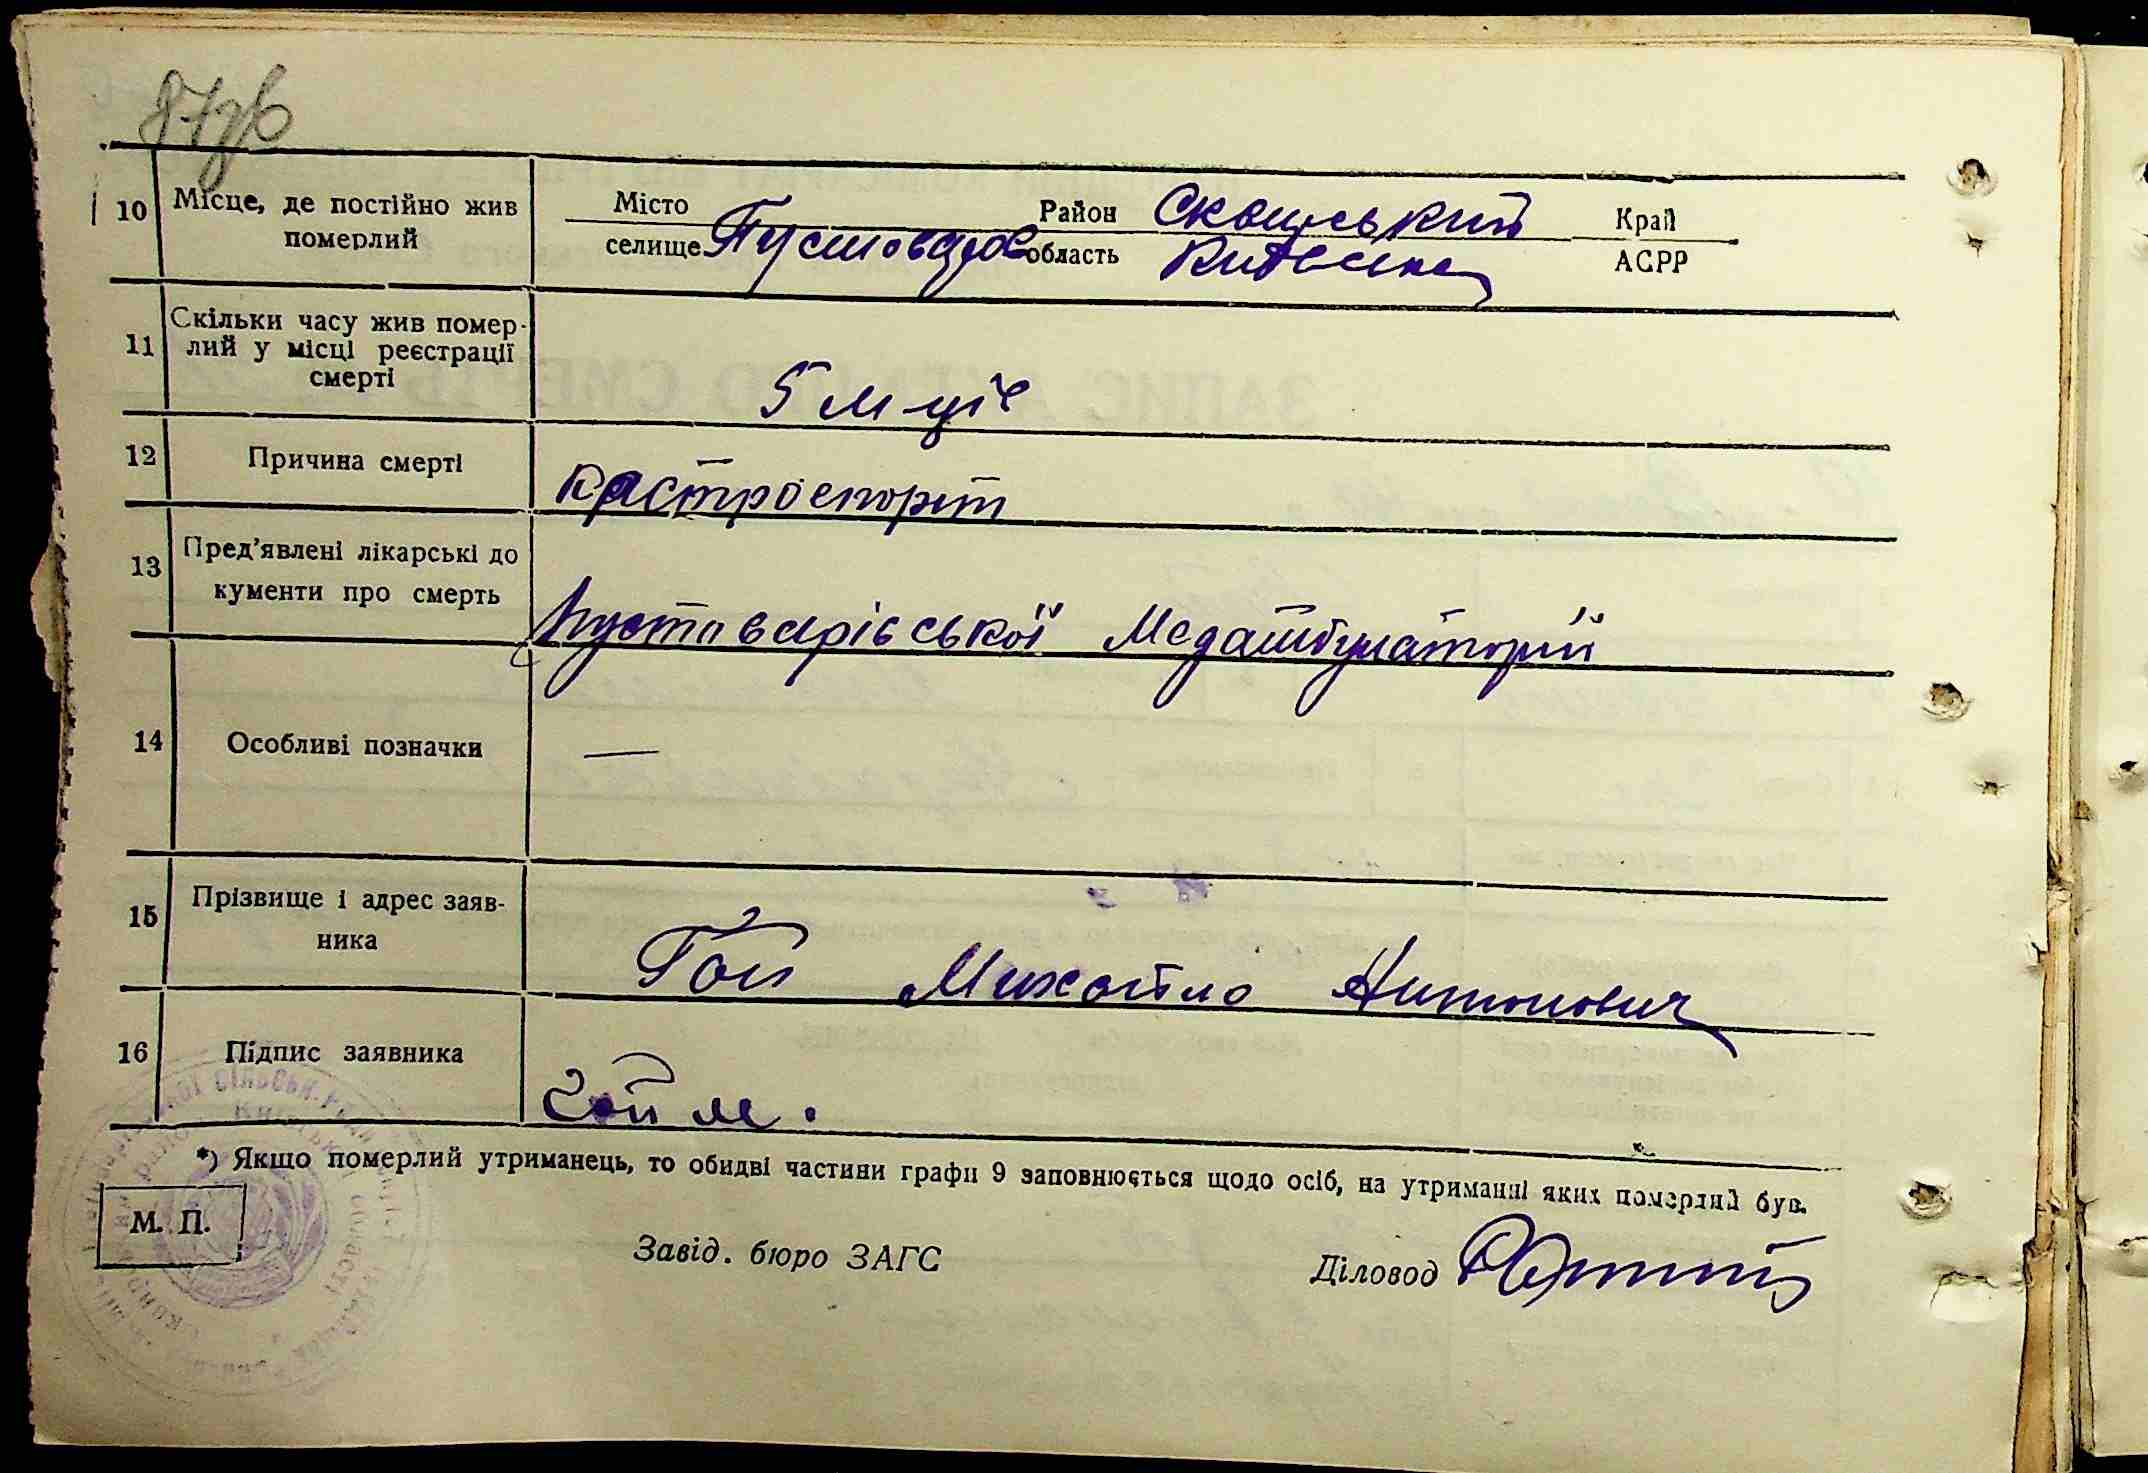 87зв
10 Місце, де постійно жив Місто Район Сквирський Край
померлий селище Пустовар область Київська АСРР
11 Скільки часу жив помер-
лий у місці реєстрації
смерті 5 м-ців
12 Причина смерті
13 Пред'явлені лікарські до
кументи про смерть Пустоварівської Медамбулаторії
14 Особливі позначки —
15 Прізвище і адрес заяв-
ника Гой Михайло Антонович
16 Підпис заявника Гой М.
*) Якщо померлий утриманець, то обидві частини графи 9 заповнюється щодо осіб, на утриманні яких померлий був.
М. П.
Завід. бюро ЗАГС Діловод